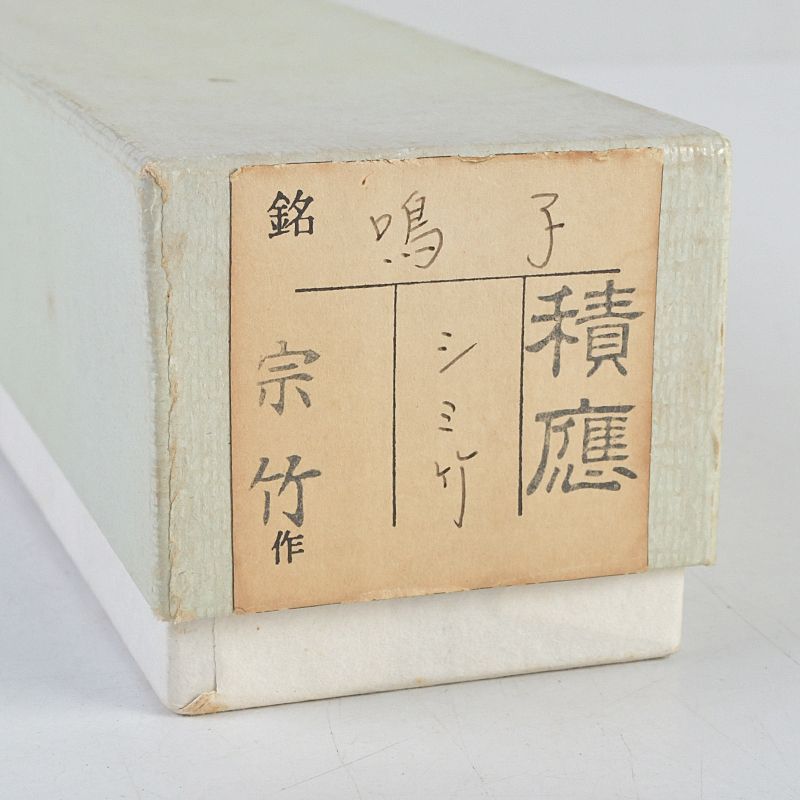 銘 鳴子
積應
シミ竹
宗竹作